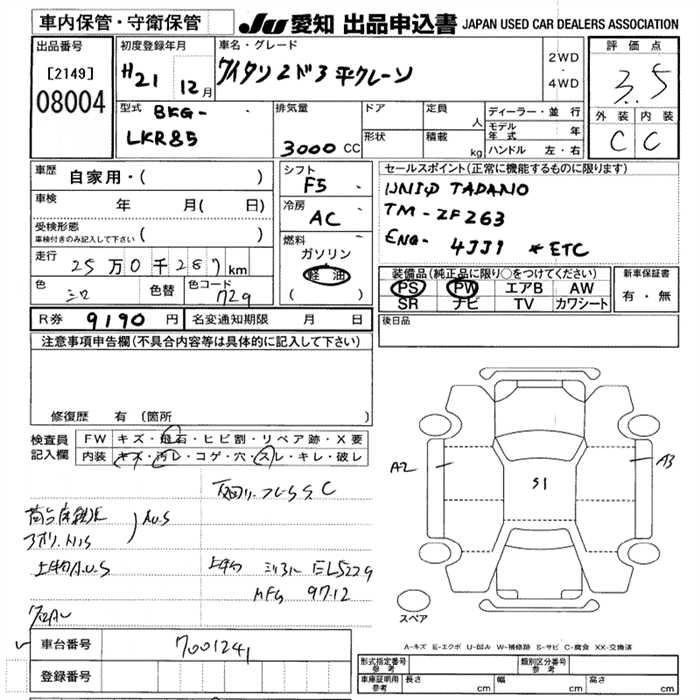 車内保管・守衛保管
JU 愛知 出品申込書 JAPAN USED CAR DEALERS ASSOCIATION
出品番号
[2149]
08004
初度登録年月
H21 12月
車名・グレード
2WD
・
4WD
評価点
3.5
外装 内装
C C
型式 BKG-
LKR85
排気量
3000 CC
ドア
形状
定員 人
積載 kg
ディーラー・並行
モデル年式 年
ハンドル 左・右
車歴 自家用・( )
車検 年 月( 日)
受検形態
車検付きのみ記入して下さい ( )
走行 25万0千287km
色 シロ 色替 色コード 729
シフト F5
冷房 AC
燃料
ガソリン
軽油
( )
セールスポイント(正常に機能するものに限ります)
UNIC TADANO
TM-ZF263
ENG- 4JJ1 *ETC
装備品(純正品に限り○をつけてください)
PS PW エアB AW
SR ナビ TV カワシート
新車保証書
有・無
R券 9190円 名変通知期限 月 日
後日品
注意事項申告欄(不具合内容等は具体的に記入して下さい)
修復歴 有(箇所
検査員
記入欄
FW キズ・飛石・ヒビ割・リペア跡・X要
内装 キズ・汚レ・コゲ・穴・スレ・キレ・破レ
A2
S1
A3
上物A.U.S
EL5229
MFG 97.12
スペア
A-キズ E-エクボ U-凹ル W-補修跡 S-サビ C-腐食 XX-交換済
車台番号 7001241
登録番号
形式指定番号 参考
類別区分番号 参考
車庫証明用 参考 長さ cm 幅 cm 高さ cm